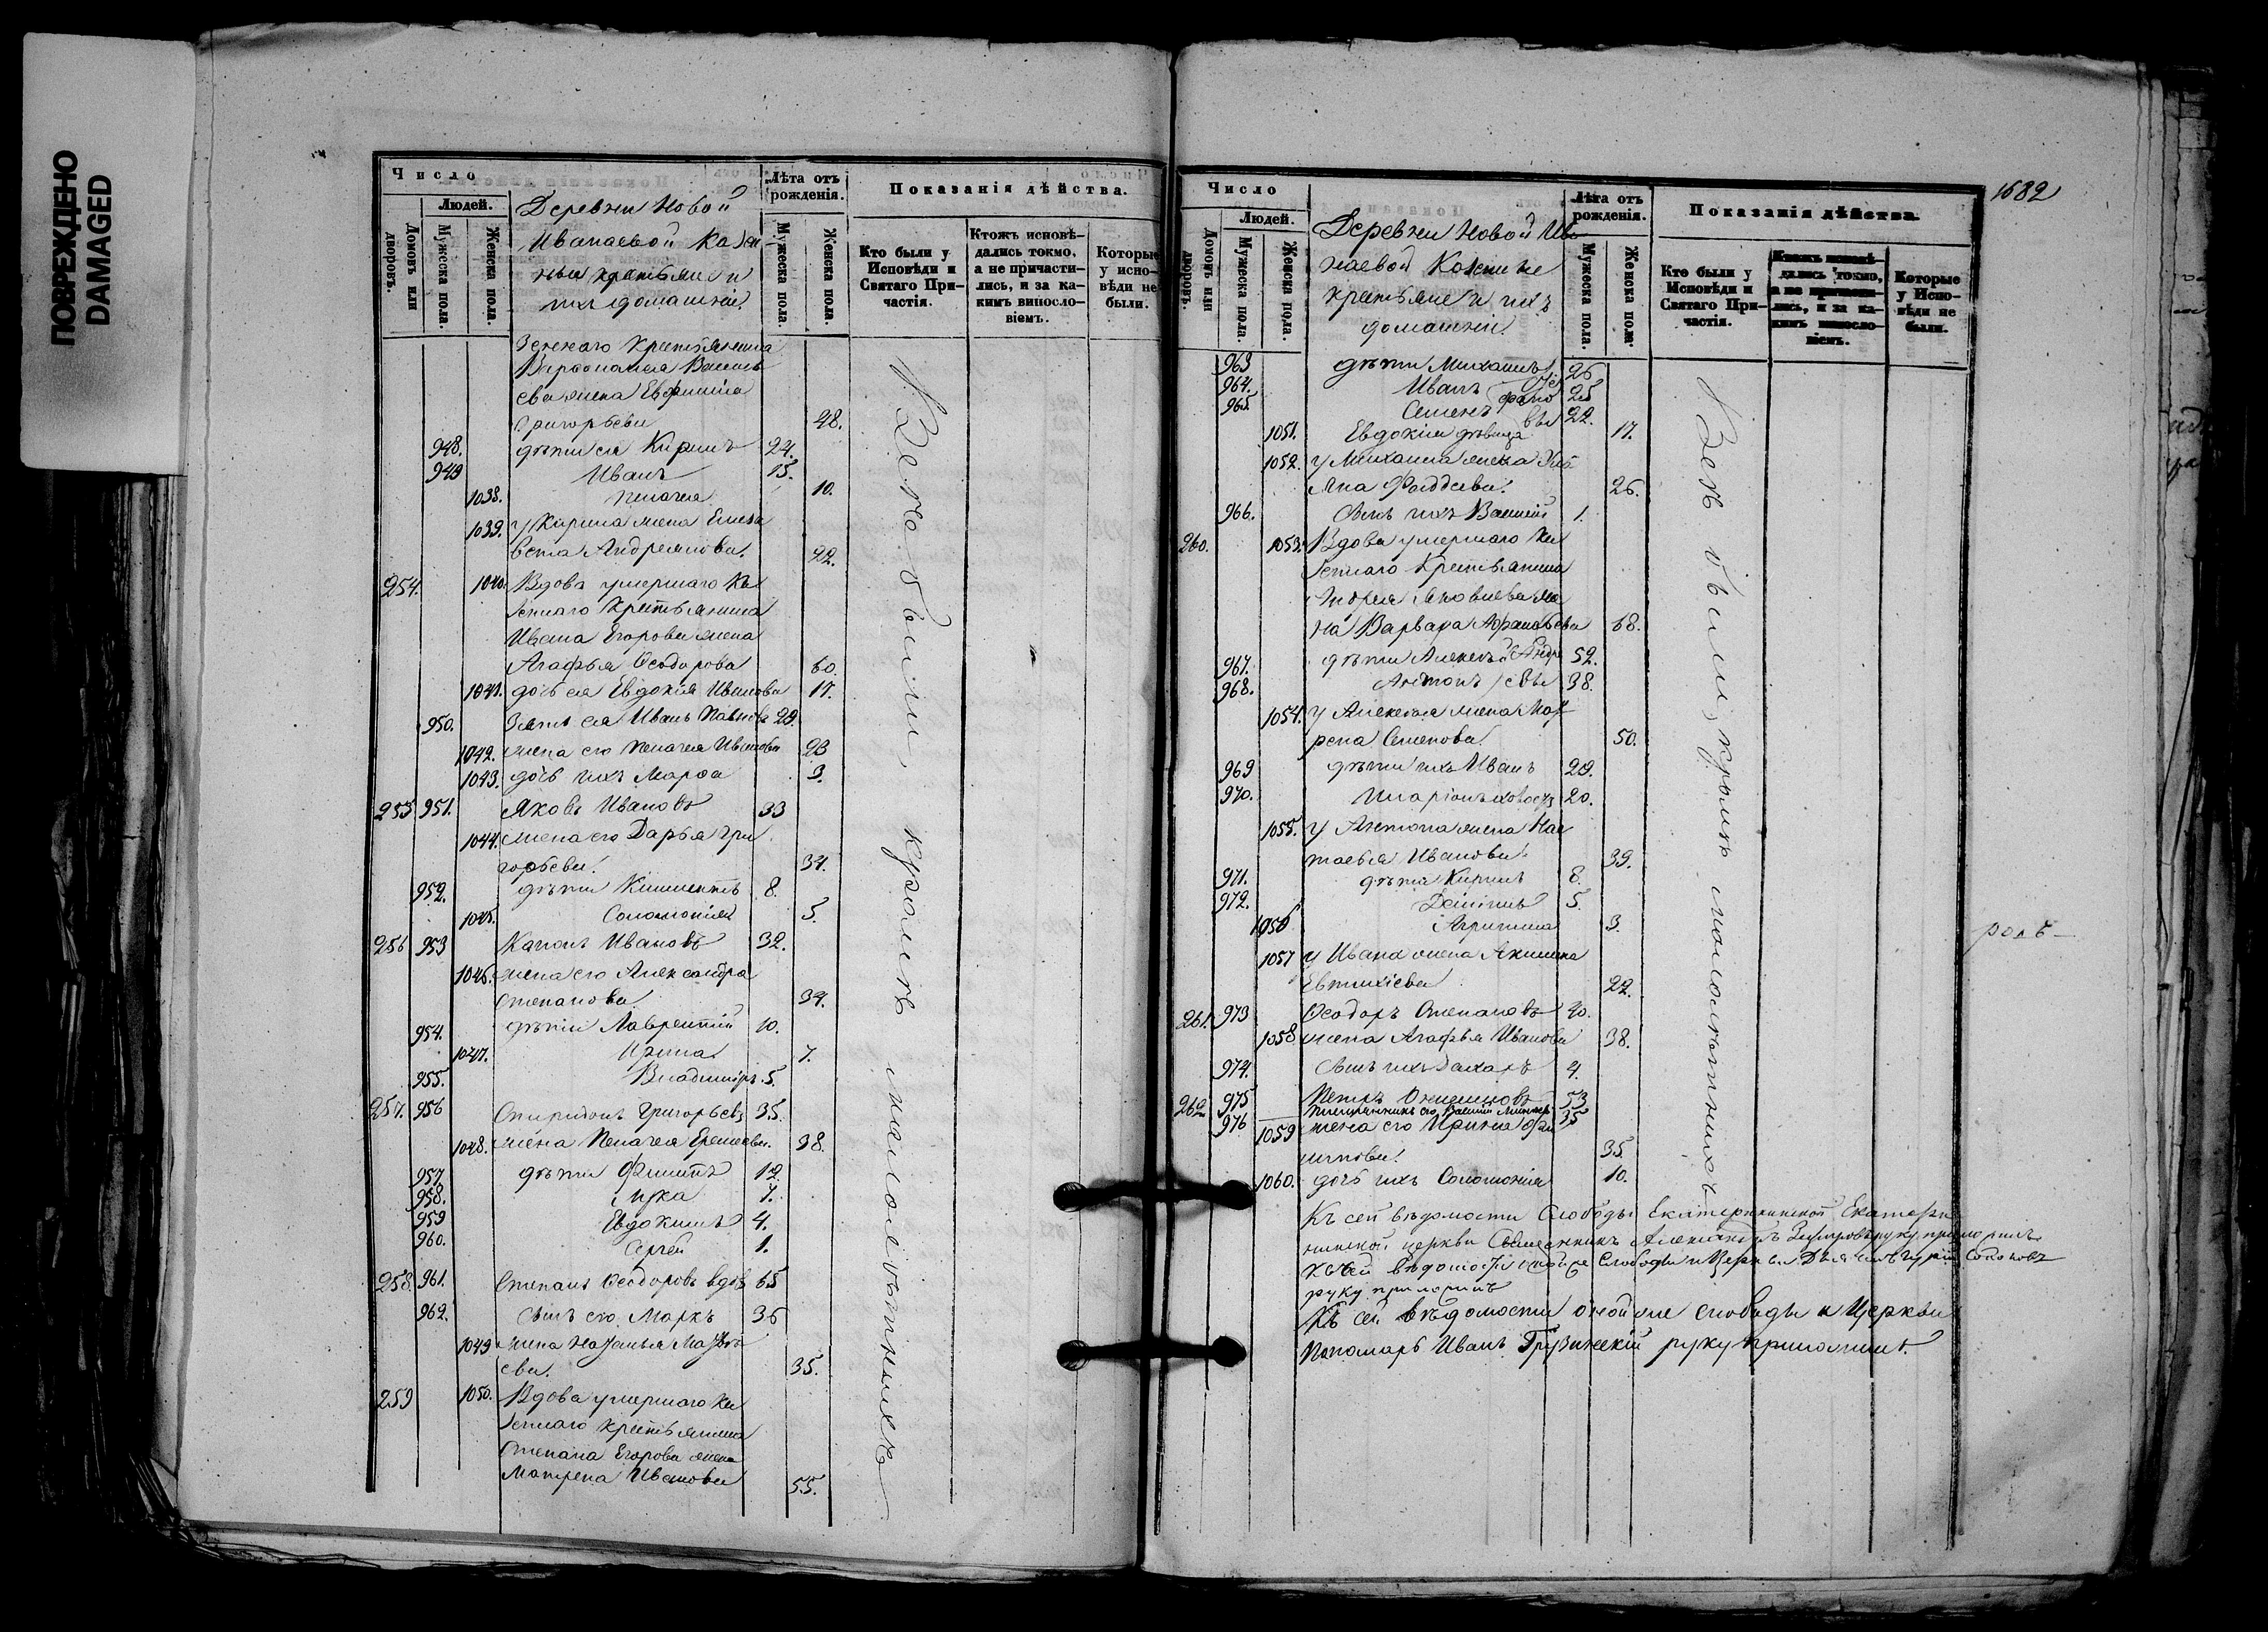 ПОВРЕЖДЕНО
DAMAGED
Число
Людей.
Домовъ или дворовъ.
Мужеска пола.
Женска пола.
Деревни Новой
Иванаевой Казен-
ныи крестьяне и
ихъ домашніи
Лѣта отъ рожденія.
Мужеска пола.
Женска пола.
Показанія дѣйства.
Кто были у Исповѣди и Святаго При-частія.
Ктожъ исповѣ-дались токмо, а не причасти-лись, и за ка-кимъ винosло-віемъ.
Которые у испо-вѣди не были.
зеннаго крестьянина
Варфоломея Василь
ева жена Евфимія
Григорьева 48.
948. дѣти ея Кирилъ 24.
949 Иванъ 15.
1038. Пелагея 10.
1039. у Кирила жена Елиза
вета Андреянова. 22.
254. 1040. Вдова умершаго Ка
зеннаго крестьянина
Ивана Егорова жена
Агафья Ѳеодорова 60.
1041. дочь ея Евдокія Иванова 17.
950. Зять ея Иванъ Павловъ 29.
1042. жена его Пелагея Иванова 23
1043. дочь ихъ Марѳа 3.
255 951. Яковъ Ивановъ 33
1044. жена его Дарья Гри
горьева. 34.
952. дѣти Климентъ 8.
1045. Соломонія 5.
256 953 Капонъ Ивановъ 32.
1046. жена его Александра
Степанова 34.
954. дѣти Лаврентій 10.
1047. Ирина 7.
955. Владиміръ 5.
257. 956 Спиридонъ Григорьевъ 35.
1048. жена Пелагея Еремеева. 38.
957. дѣти Филипъ 12
958. Лука 7.
959 Евдокимъ 4.
960. Сергей 1.
258. 961. Степанъ Ѳеодоровъ вдов 65
962. Сынъ его Маркъ 36
1049 жена Наталья Матвѣ
ева. 35.
259 1050. Вдова умершаго Ка
зеннаго крестьянина
Степана Егорова жена
Матрена Иванова 55.
Всѣ были кромѣ малолѣтнихъ
1682
Число
Людей.
Домовъ или дворовъ.
Мужеска пола.
Женска пола.
Деревни Новой Ива
наевой Казенные
крестьяне и ихъ
домашніи
Лѣта отъ рожденія.
Мужеска пола.
Женска пола.
Показанія дѣйства.
Кто были у Исповѣди и Святаго При-частія.
Ктожъ исповѣ-дались токмо, а не причасти-лись, и за ка-кимъ винosло-віемъ.
Которые у Испо-вѣди не были.
963 дѣти Михаилъ 26
964. Иванъ 25
965. Семенъ 22.
1051. Евдокія дѣвица 17.
1052. у Михаила жена Улі
яна Фаддеева. 26.
966. Сынъ ихъ Василій 1.
260. 1053. Вдова умершаго Ка
зеннаго крестьянина
Андрея Яковлева же
на Варвара Афанасьева 68.
967. дѣти Алексѣй Андре 52.
968. Антонъ евы 38.
1054. у Алексея жена Мат
рена Семенова. 50.
969 дѣти ихъ Иванъ 29.
970. Иларіонъ холостъ 20.
1055. у Антона жена Нас
тасья Иванова. 39.
971. дѣти Кирилъ 8.
972. Даніилъ 5.
1056 Агрипина 3.
1057 у Ивана жена Акилина
Евтихіева 22.
261. 973 Ѳеодоръ Степановъ 40.
1058 жена Агафья Иванова 38.
974. Сынъ ихъ Захаръ 4.
262 975 Петръ Онисимовъ 53
976 племянникъ его Василій 35
1059 жена его Ирина Фи
липова. 35.
1060. дочь ихъ Соломонія 10.
Всѣ были, кромѣ малолѣтнихъ
роль
Къ сей вѣдомости Слободы Екатерининской Екатери
нинской церкви Священникъ Александръ руку приложилъ
Къ сей вѣдомости Слободы и Церкви Соколовъ
руку приложилъ
Къ сей вѣдомости оной же слободы и Церкви
Пономарь Иванъ Грузинскій руку приложилъ.